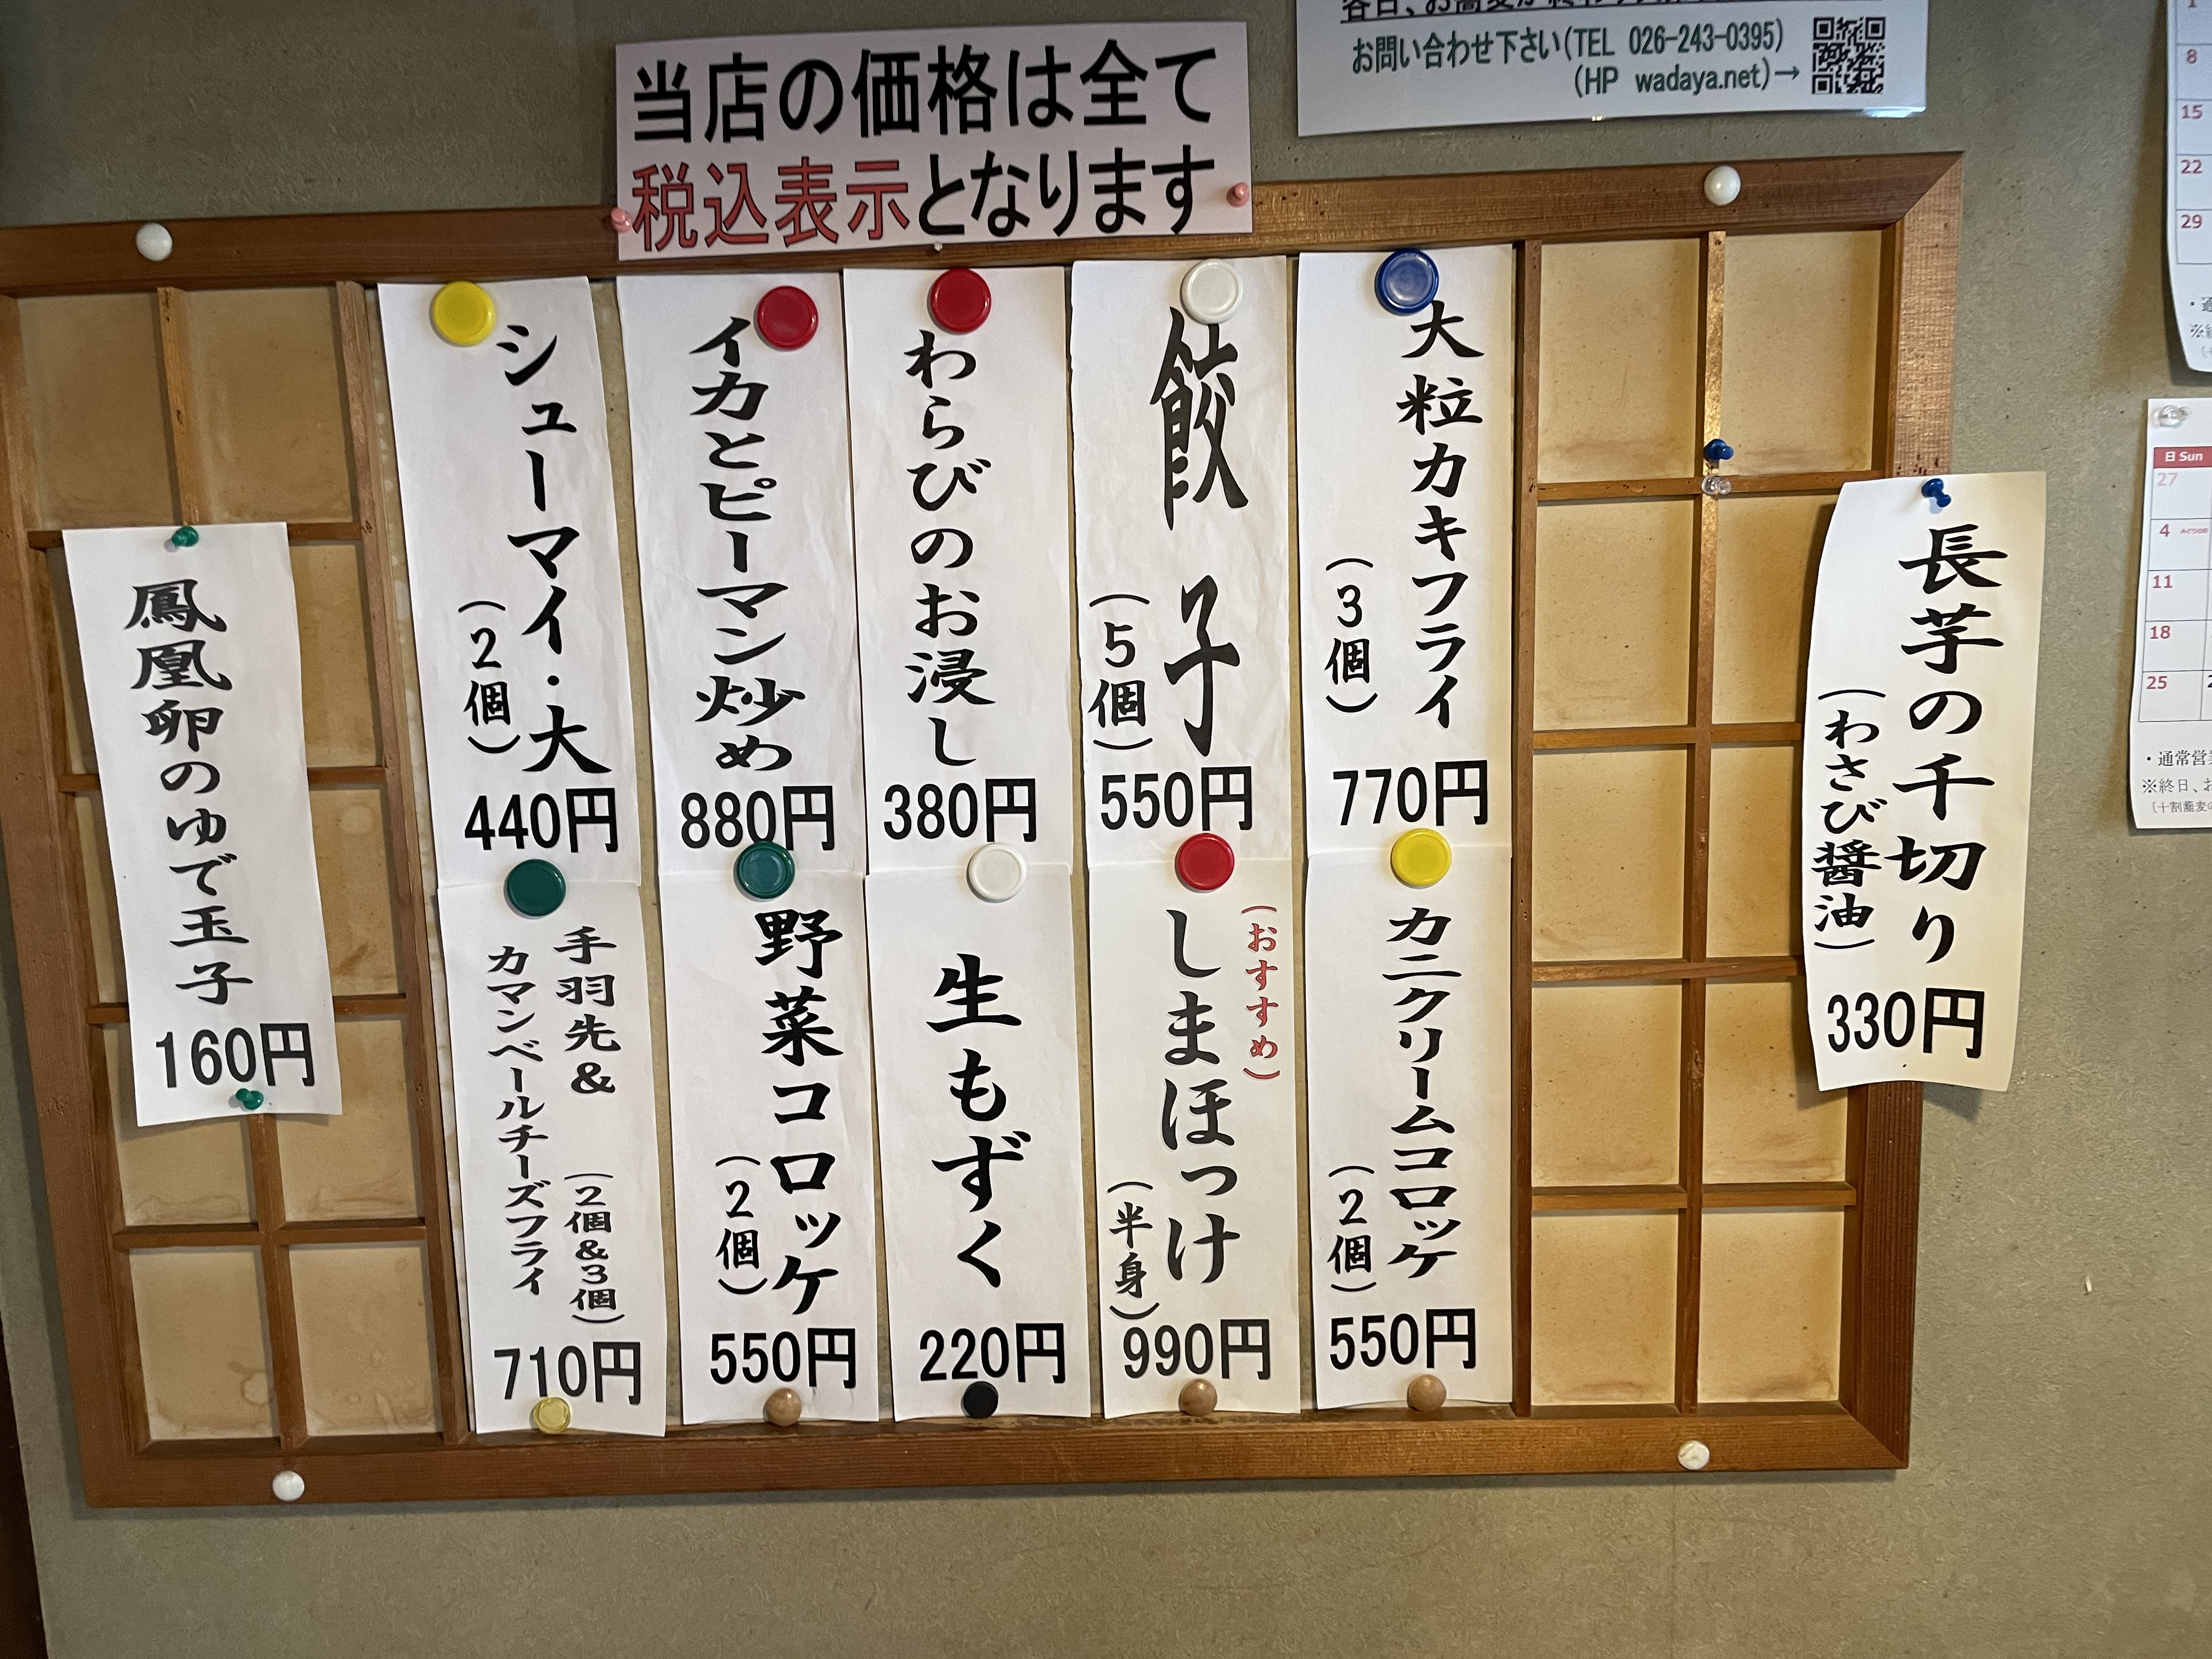 お問い合わせ下さい(TEL 026-243-0395)
(HP wadaya.net)→
当店の価格は全て
税込表示となります
長芋の千切り
(わさび醤油)
330円
大粒カキフライ
(3個)
770円
餃子
(5個)
550円
わらびのお浸し
380円
イカとピーマン炒め
880円
シューマイ・大
(2個)
440円
カニクリームコロッケ
(2個)
550円
(おすすめ)
しまほっけ
(半身)
990円
生もずく
220円
野菜コロッケ
(2個)
550円
手羽先&
カマンベールチーズフライ
(2個&3個)
710円
鳳凰卵のゆで玉子
160円
8
15
22
29
日 Sun
27
4
11
18
25
・通常営業
※終日、お